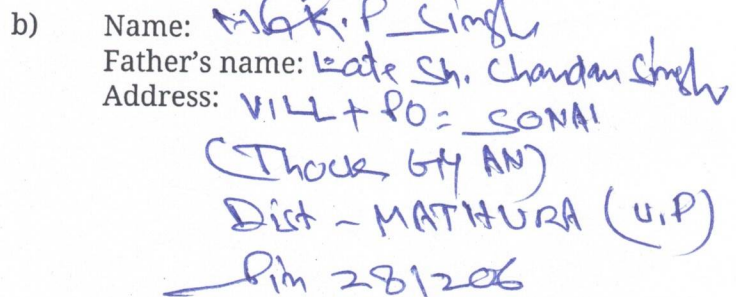 b) Name: K.P Singh
Father's name: Late Sh. Chandan Singh
Address: VILL + PO = SONAI
(Thock GYAN)
Dist - MATHURA (U.P)
Pin 281206